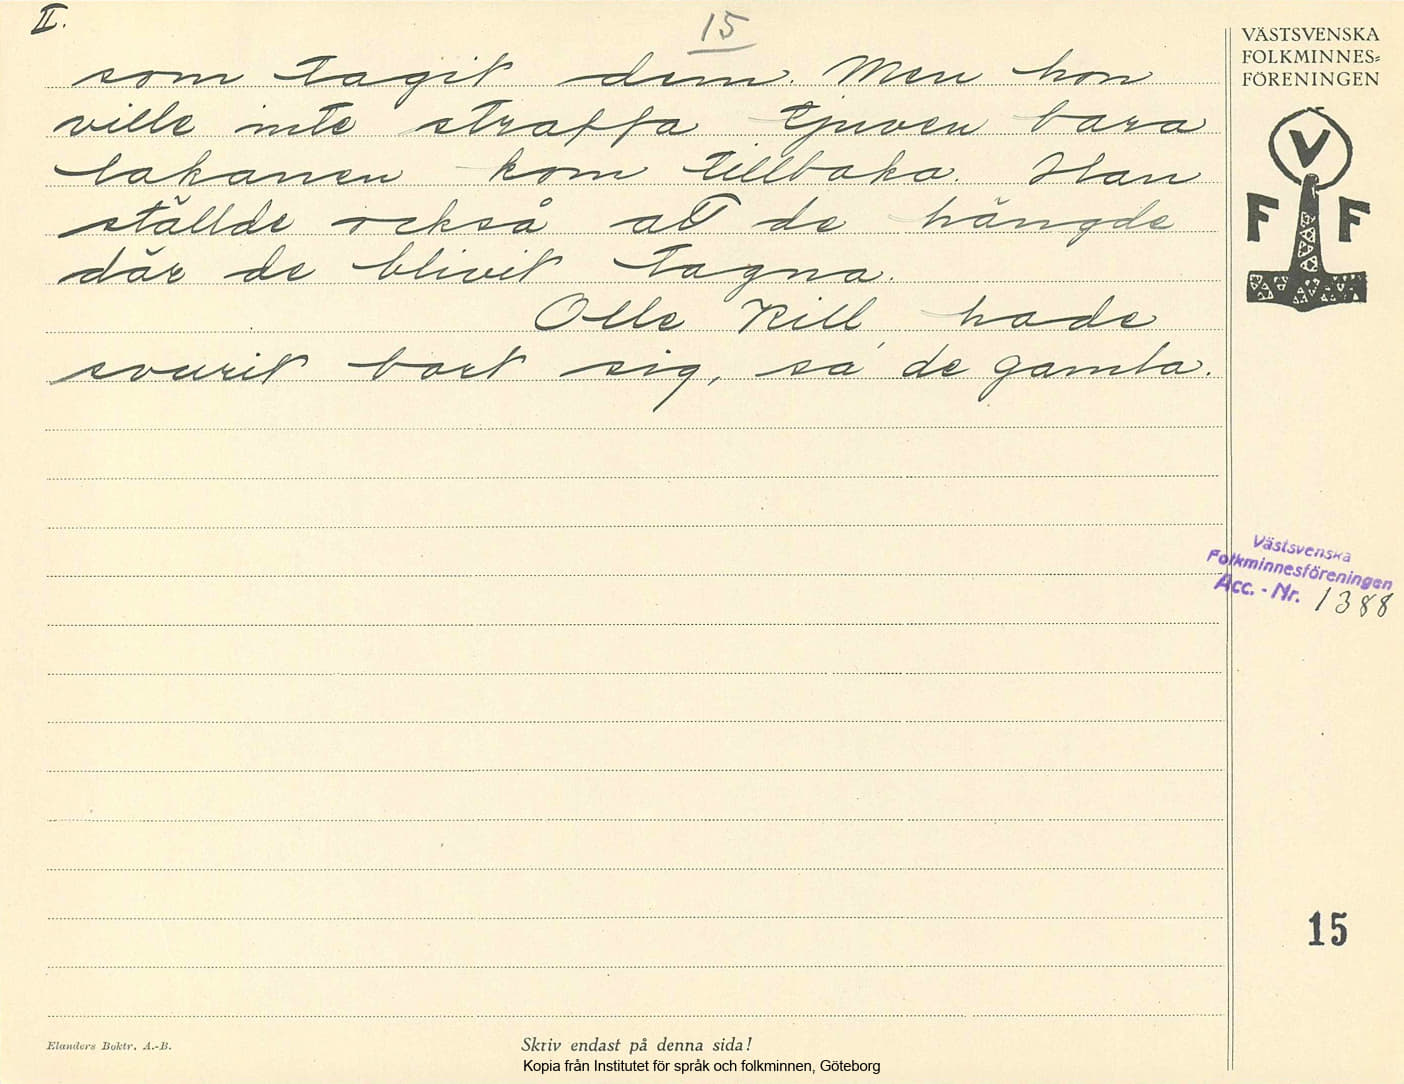 II.
15
som tagit dem. Men hon
ville inte straffa tjuven bara
lakanen kom tillbaka. Han
ställde också att de hängde
där de blivit tagna.
Olle Kill hade
svurit bort sig, sa' de gamla.
VÄSTSVENSKA
FOLKMINNES=
FÖRENINGEN
V
F F
Västsvenska
Folkminnesföreningen
Acc. - Nr. 1388
15
Elanders Boktr. A.-B.
Skriv endast på denna sida!
Kopia från Institutet för språk och folkminnen, Göteborg